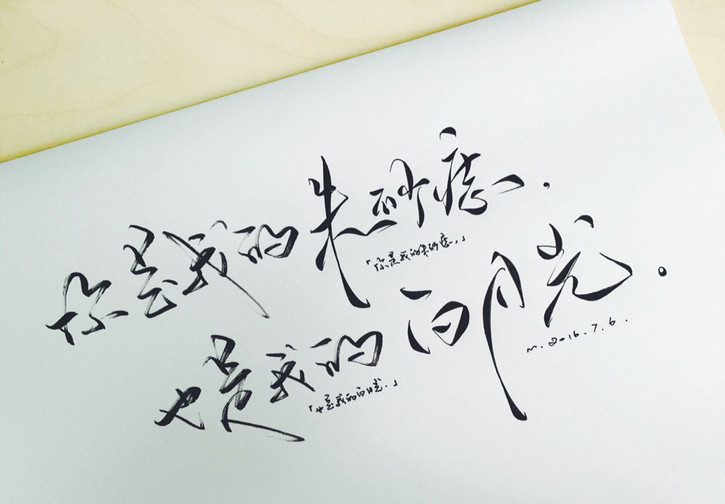 你是我的朱砂痣.
「你是我的朱砂痣.」
也是我的白月光.
「也是我的白月光.」
n. 2016.7.6.